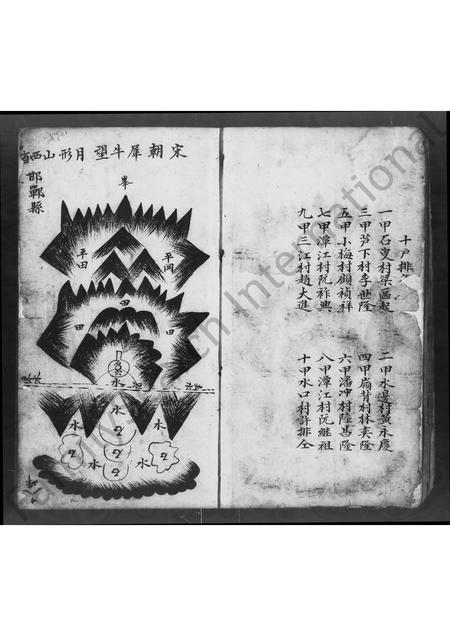 十戶排
一甲石叟村梁區起
二甲水邊村黃永慶
三甲芦下村李世隆
四甲嶺背村林奕隆
五甲小梅村顧禎祥
六甲潘冲村陸馬隆
七甲潭江村阮祚興
八甲潭江村阮繼祖
九甲三江村趙大進
十甲水口村許排仝
宋朝犀牛望月形山西省
邯鄲縣
峯
平田
平岡
田
田
田
水
水
水
水
水
水
水
FamilySearch International